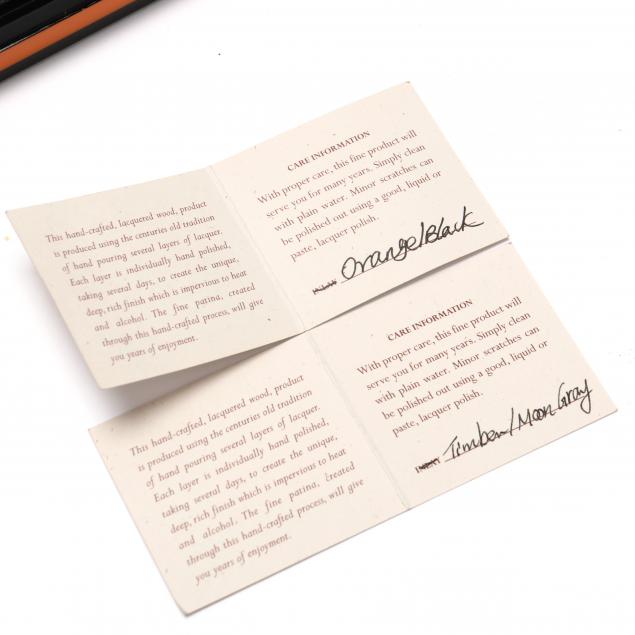 This hand-crafted, lacquered wood, product
is produced using the centuries old tradition
of hand pouring several layers of lacquer.
Each layer is individually hand polished,
taking several days, to create the unique,
deep, rich finish which is impervious to heat
and alcohol. The fine patina, created
through this hand-crafted process, will give
you years of enjoyment.
CARE INFORMATION
With proper care, this fine product will
serve you for many years. Simply clean
with plain water. Minor scratches can
be polished out using a good, liquid or
paste, lacquer polish.
Orange/Black
This hand-crafted, lacquered wood, product
is produced using the centuries old tradition
of hand pouring several layers of lacquer.
Each layer is individually hand polished,
taking several days, to create the unique,
deep, rich finish which is impervious to heat
and alcohol. The fine patina, created
through this hand-crafted process, will give
you years of enjoyment.
CARE INFORMATION
With proper care, this fine product will
serve you for many years. Simply clean
with plain water. Minor scratches can
be polished out using a good, liquid or
paste, lacquer polish.
Timber/Moon Gray